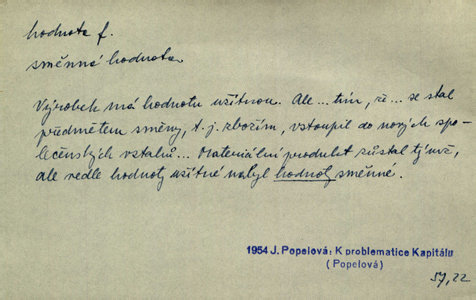 hodnota f.
směnná hodnota
Výrobek má hodnotu užitnou. Ale ... tím, že ... se stal
předmětem směny, t. j. zbožím, vstoupil do nových spo-
lečenských vztahů... Materiální produkt zůstal týmž,
ale vedle hodnoty užitné nabyl hodnoty směnné.
1954 J. Popelová: K problematice Kapitálu
(Popelová)
57,22